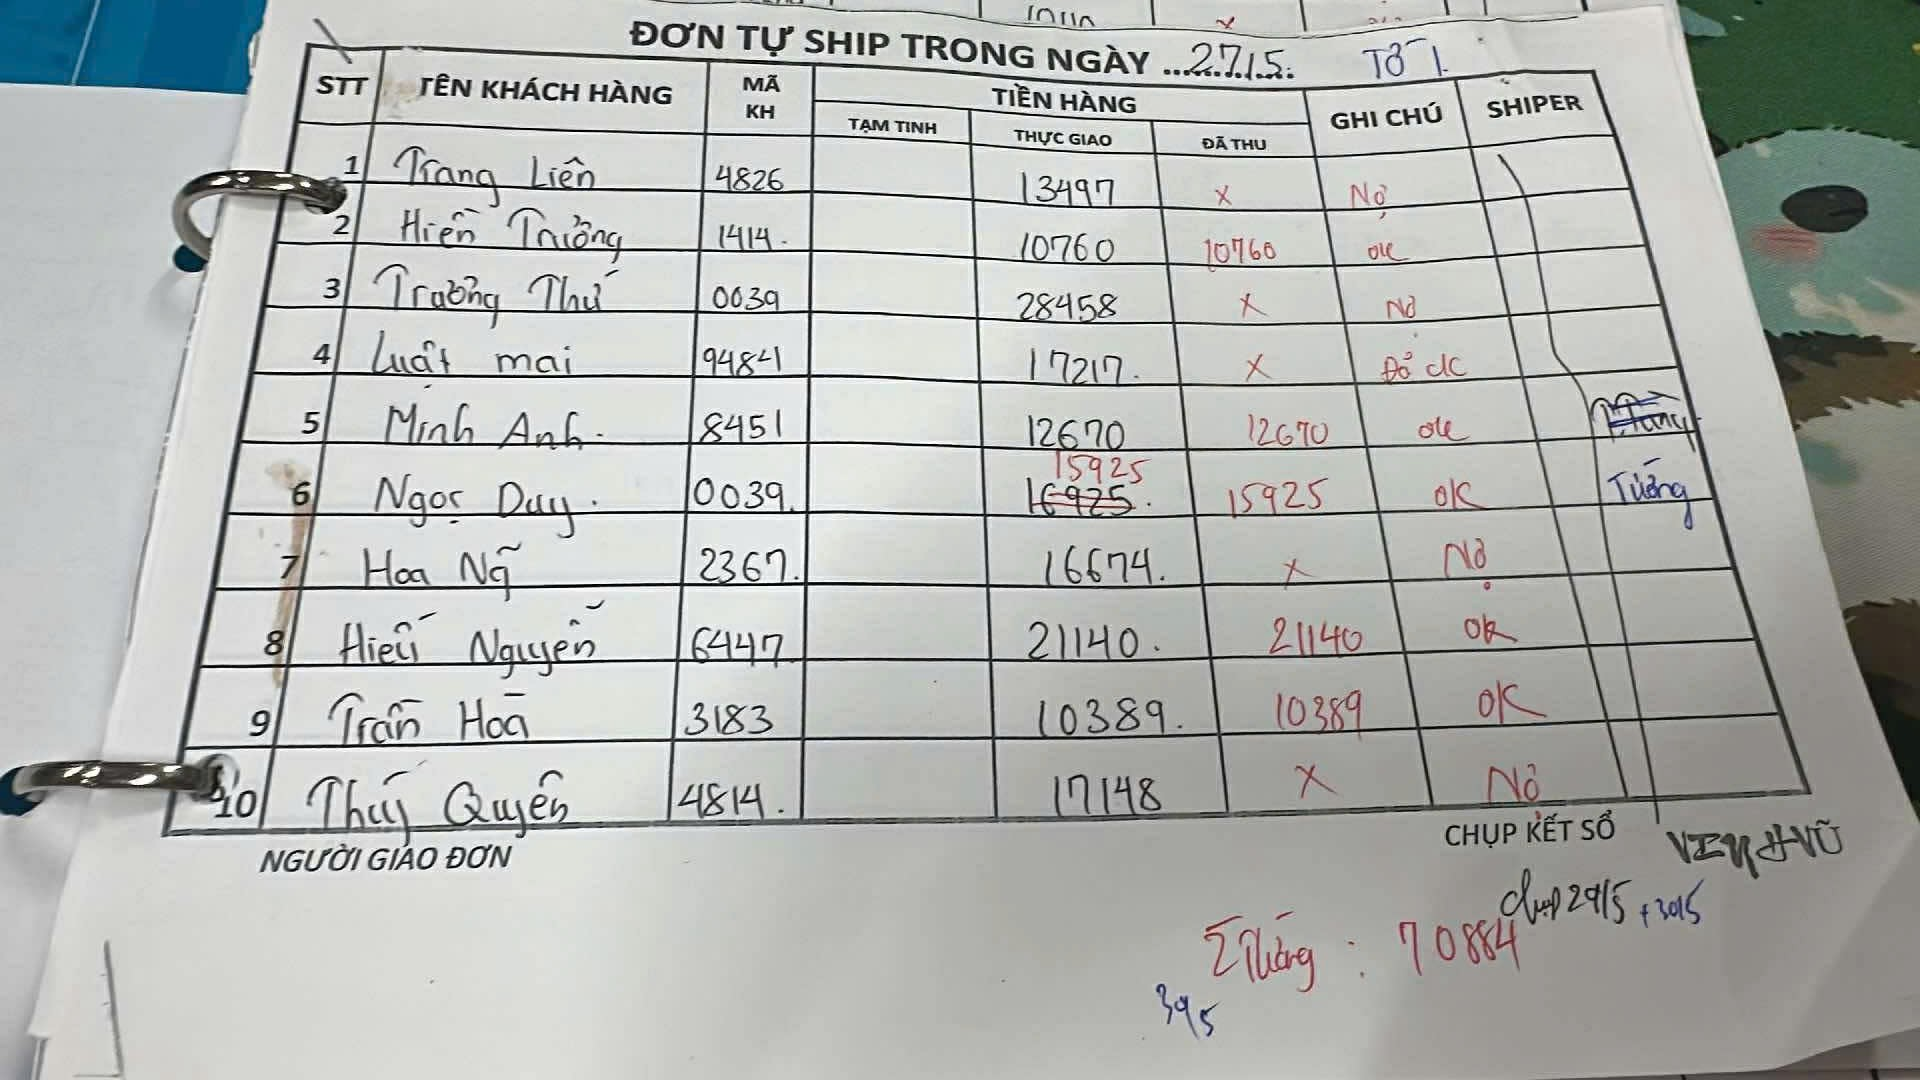 ĐƠN TỰ SHIP TRONG NGÀY ...27/5.. TỜ 1.
STT TÊN KHÁCH HÀNG MÃ KH TIỀN HÀNG GHI CHÚ SHIPER
TẠM TINH THỰC GIAO ĐÃ THU
1 Trang Liên 4826 13497 x Nợ
2 Hiền Trường 1414. 10760 10760 ok
3 Trường Thú 0039 28458 x Nợ
4 Luật mai 94841 17217. x Đỏ ck
5 Minh Anh. 8451 12670 12670 ok
15925
6 Ngọc Duy. 0039. 16925. 15925 OK Tưởng
7 Hoa Ngũ 2367. 16674. x Nợ
8 Hiếu Nguyễn 6447 21140. 21140 ok
9 Trần Hoà 3183 10389. 10389 OK
10 Thuý Quyên 4814. 17148 x Nợ
NGƯỜI GIAO ĐƠN CHỤP KẾT SỔ
VINH VŨ
chụp 29/5 + 30/5
Σ Tưởng : 70884